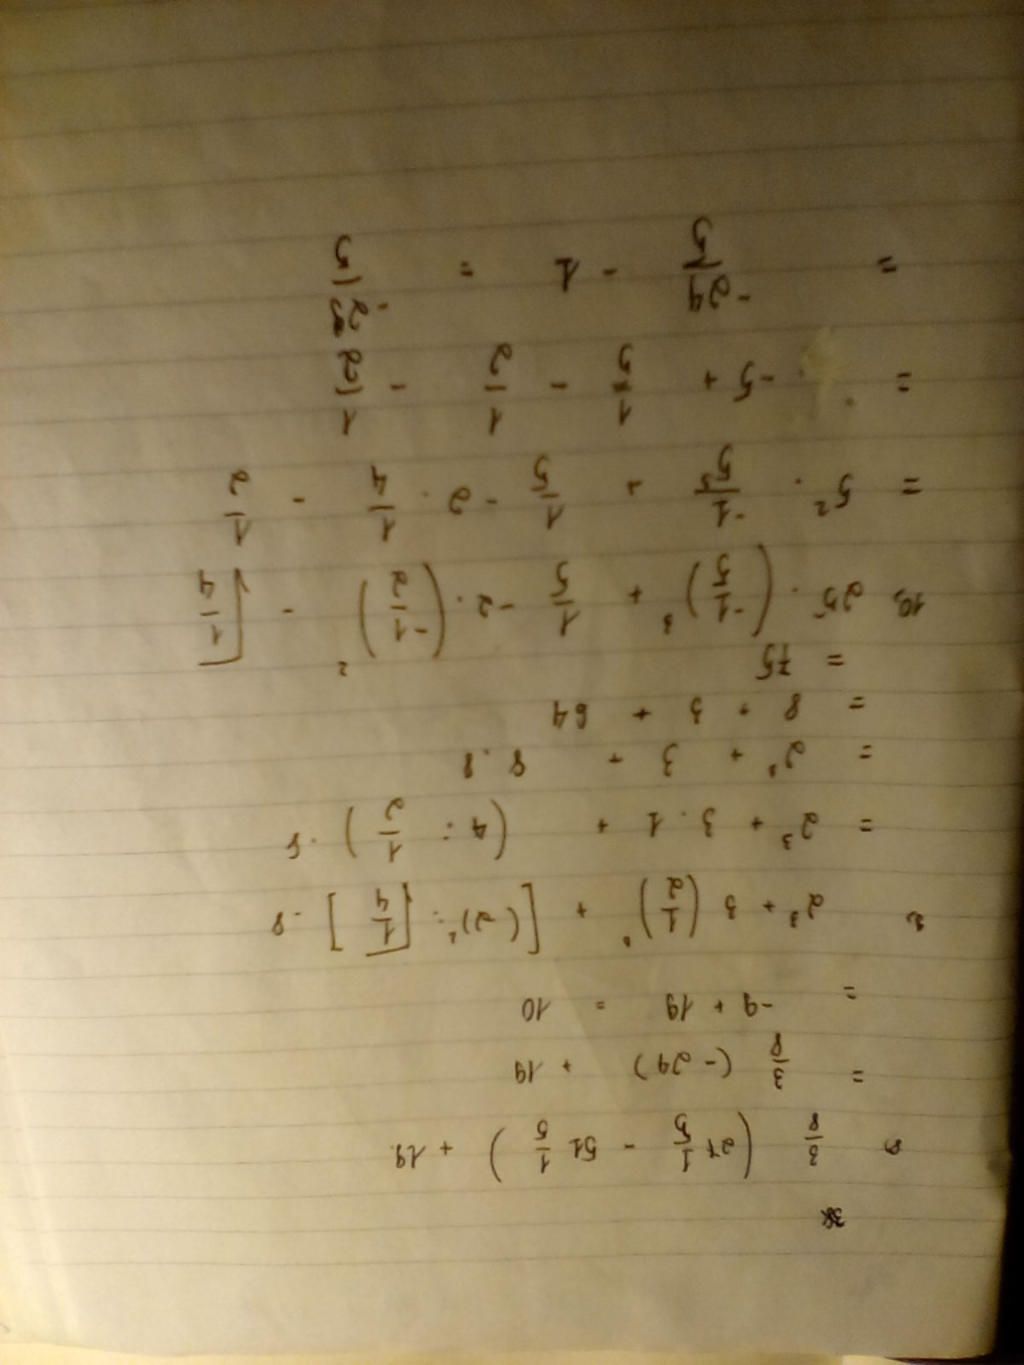 3/8 (27 1/5 - 51 1/5) + 19
= 3/8 (-24) + 19
= -9 + 19 = 10
2^3 + 3 (1/2)^0 + [(-2)^2 : √(1/4)] · 8
= 2^3 + 3 · 1 + (4 : 1/2) · 8
= 2^3 + 3 + 8 · 8
= 8 + 3 + 64
= 75
10, 25 · (-1/5)^3 + 1/5 - 2 · (-1/2)^2 - √(1/4)
= 5^2 · -1/5^3 + 1/5 - 2 · 1/4 - 1/2
= -5 + 1/5 - 1/2 - 1/2
= -24/5 - 1 =